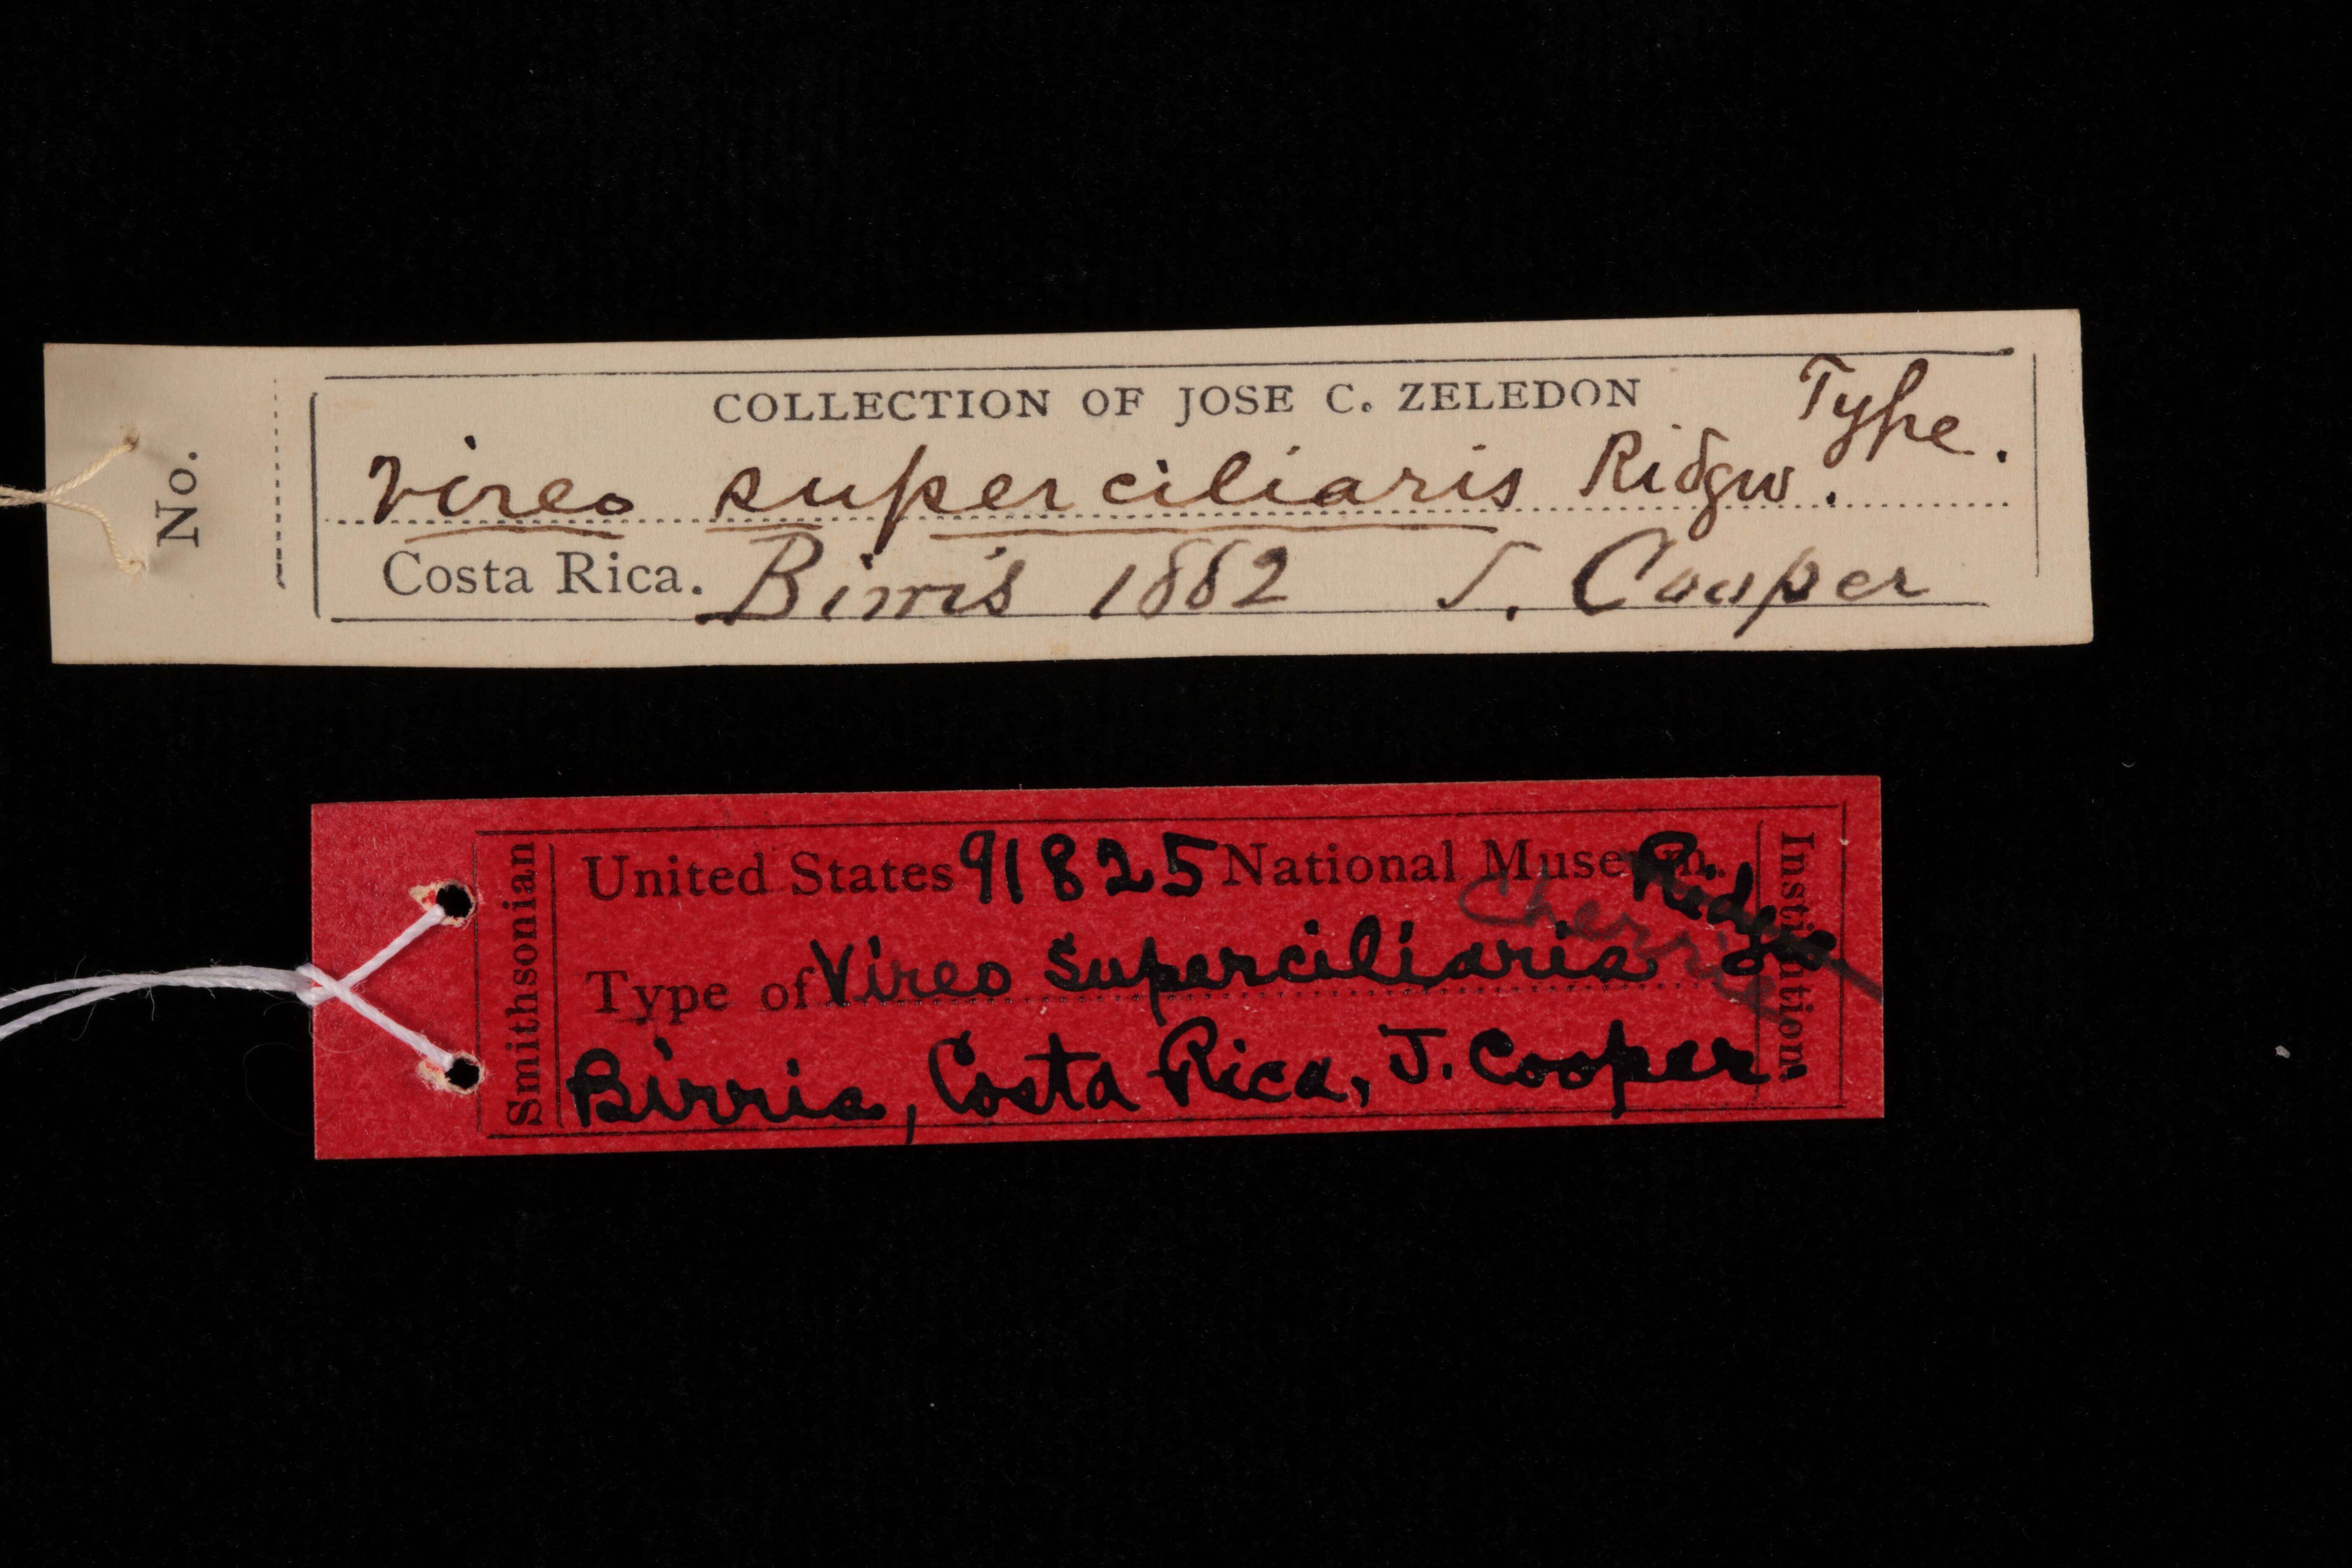 No.
COLLECTION OF JOSE C. ZELEDON
Type.
Vireo superciliaris Ridgw.
Costa Rica. Birris 1882 J. Cooper
Smithsonian
United States 91825 National Museum.
Ridgw
Cherrie
Type of Vireo superciliaris
Birris, Costa Rica, J. Cooper
Institution.